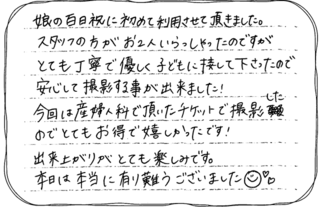 娘の百日祝に初めて利用させて頂きました。
スタッフの方がお2人いらっしゃったのですが
とても丁寧で優しく子どもに接して下さったので
安心して撮影する事が出来ました!
今回は産婦人科で頂いたチケットで撮影した
のでとてもお得で嬉しかったです!
出来上がりがとても楽しみです。
本日は本当に有り難うございました